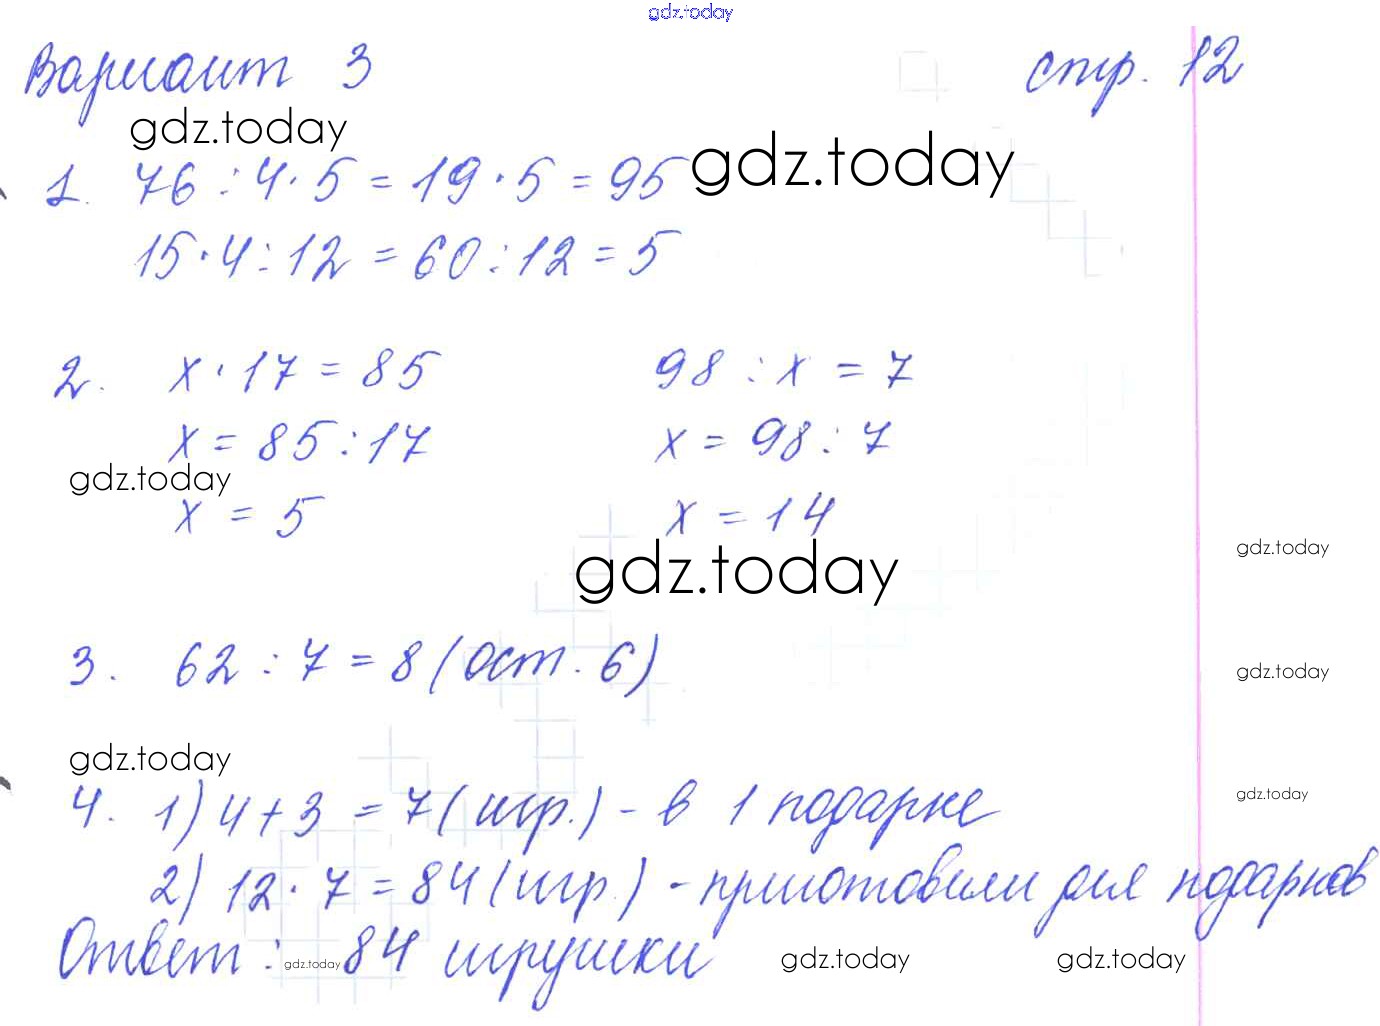 gdz.today
Вариант 3 стр. 12
gdz.today
gdz.today
1. 76 : 4 · 5 = 19 · 5 = 95
15 · 4 : 12 = 60 : 12 = 5
2. x · 17 = 85 98 : x = 7
x = 85 : 17 x = 98 : 7
gdz.today
x = 5 x = 14
gdz.today
gdz.today
3. 62 : 7 = 8 (ост. 6)
gdz.today
gdz.today
4. 1) 4 + 3 = 7 (игр.) - в 1 подарке
gdz.today
2) 12 · 7 = 84 (игр.) - приготовили для подарков
Ответ: 84 игрушки
gdz.today gdz.today gdz.today